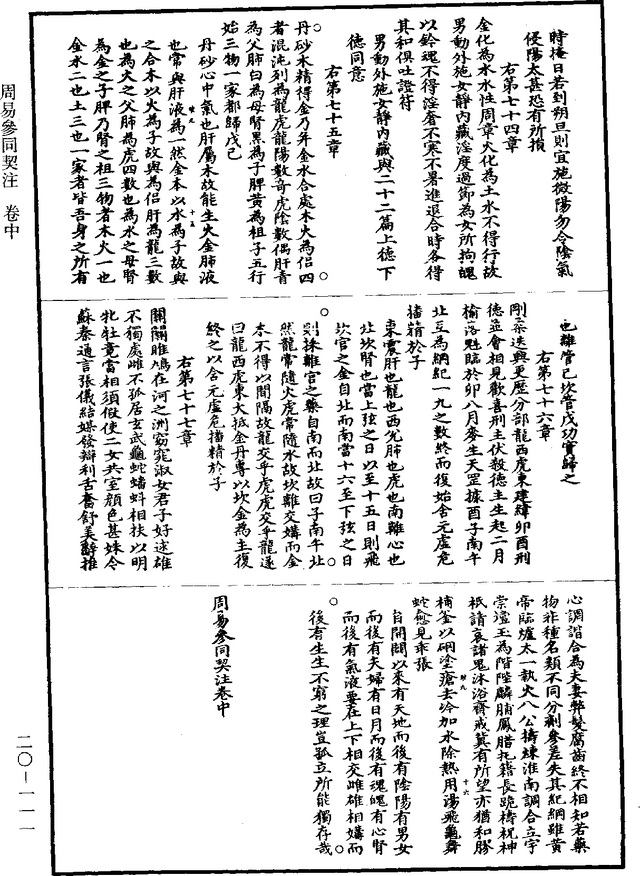 時掩日若到朔旦則宜施微陽勿令陰氣
侵陽太甚恐有所損
右第七十四章
金化為水水性周章火化為土水不得行故
男動外施女靜內藏溢度過節為女所拘魄
以鈐魂不得淫奢不寒不暑進退合時各得
其和俱吐證符
男動外施女靜內藏與二十二篇上德下
德同意
右第七十五章
丹砂木精得金乃并金水合處木火為侶四
者混沌列為龍虎龍陽數奇虎陰數偶肝青
為父肺白為母腎黑為子脾黃為祖子五行
始三物一家都歸戊己
丹砂心中氣也肝屬木故能生火金肺液
也常與肝液為一然金本以水為子故與
之合木以火為子故與為侶肝為龍三數
也為火之父肺為虎四數也為水之母腎
為金之子脾乃腎之祖三物者木火一也
金水二也土三也一家者皆吾身之所有
也雖管已坎管戊功實歸之
右第七十六章
剛柔迭興更歷分部龍西虎東建緯卯酉刑
德並會相見歡喜刑主伏殺德主生起二月
榆落魁臨於卯八月麥生天罡據酉子南午
北互為綱紀一九之數終而復始含元虛危
播精於子
東震肝也龍也西兌肺也虎也南離心也
北坎腎也當上弦之日以至十五日則飛
坎官之金自北而南當十六至下弦之日
則採離宮之藥自南而北故曰子南午北
然龍常隨火虎常隨水故坎離交媾而金
木不得以間隔故龍交乎虎虎交乎龍遂
曰龍西虎東大抵金丹專以坎金為主復
終之以含元虛危播精於子
右第七十七章
關關雎鳩在河之洲窈窕淑女君子好逑雄
不獨處雌不孤居玄武龜蛇蟠蚪相扶以明
牝牡竟當相須假使二女共室顏色甚姝令
蘇秦通言張儀結媒發辯利舌奮舒美辭推
心調諧合為夫妻弊髮腐齒終不相知若藥
物非種名類不同分劑參差失其紀綱雖黃
帝臨爐太一執火八公擣煉淮南調合立宇
崇壇玉為階陛麟脯鳳腊把籍長跪禱祝神
祇請哀諸鬼沐浴齋戒冀有所望亦猶和膠
補釜以硇塗瘡去冷加水除熱用湯飛龜舞
蛇愈見乖張
自開闢以來有天地而後有陰陽有男女
而後有夫婦有日月而後有魂魄有心腎
而後有氣液要在上下相交雌雄相媾而
後有生生不窮之理豈孤立所能獨存哉
周易參同契注卷中
周易參同契注 卷中
二〇-一一一